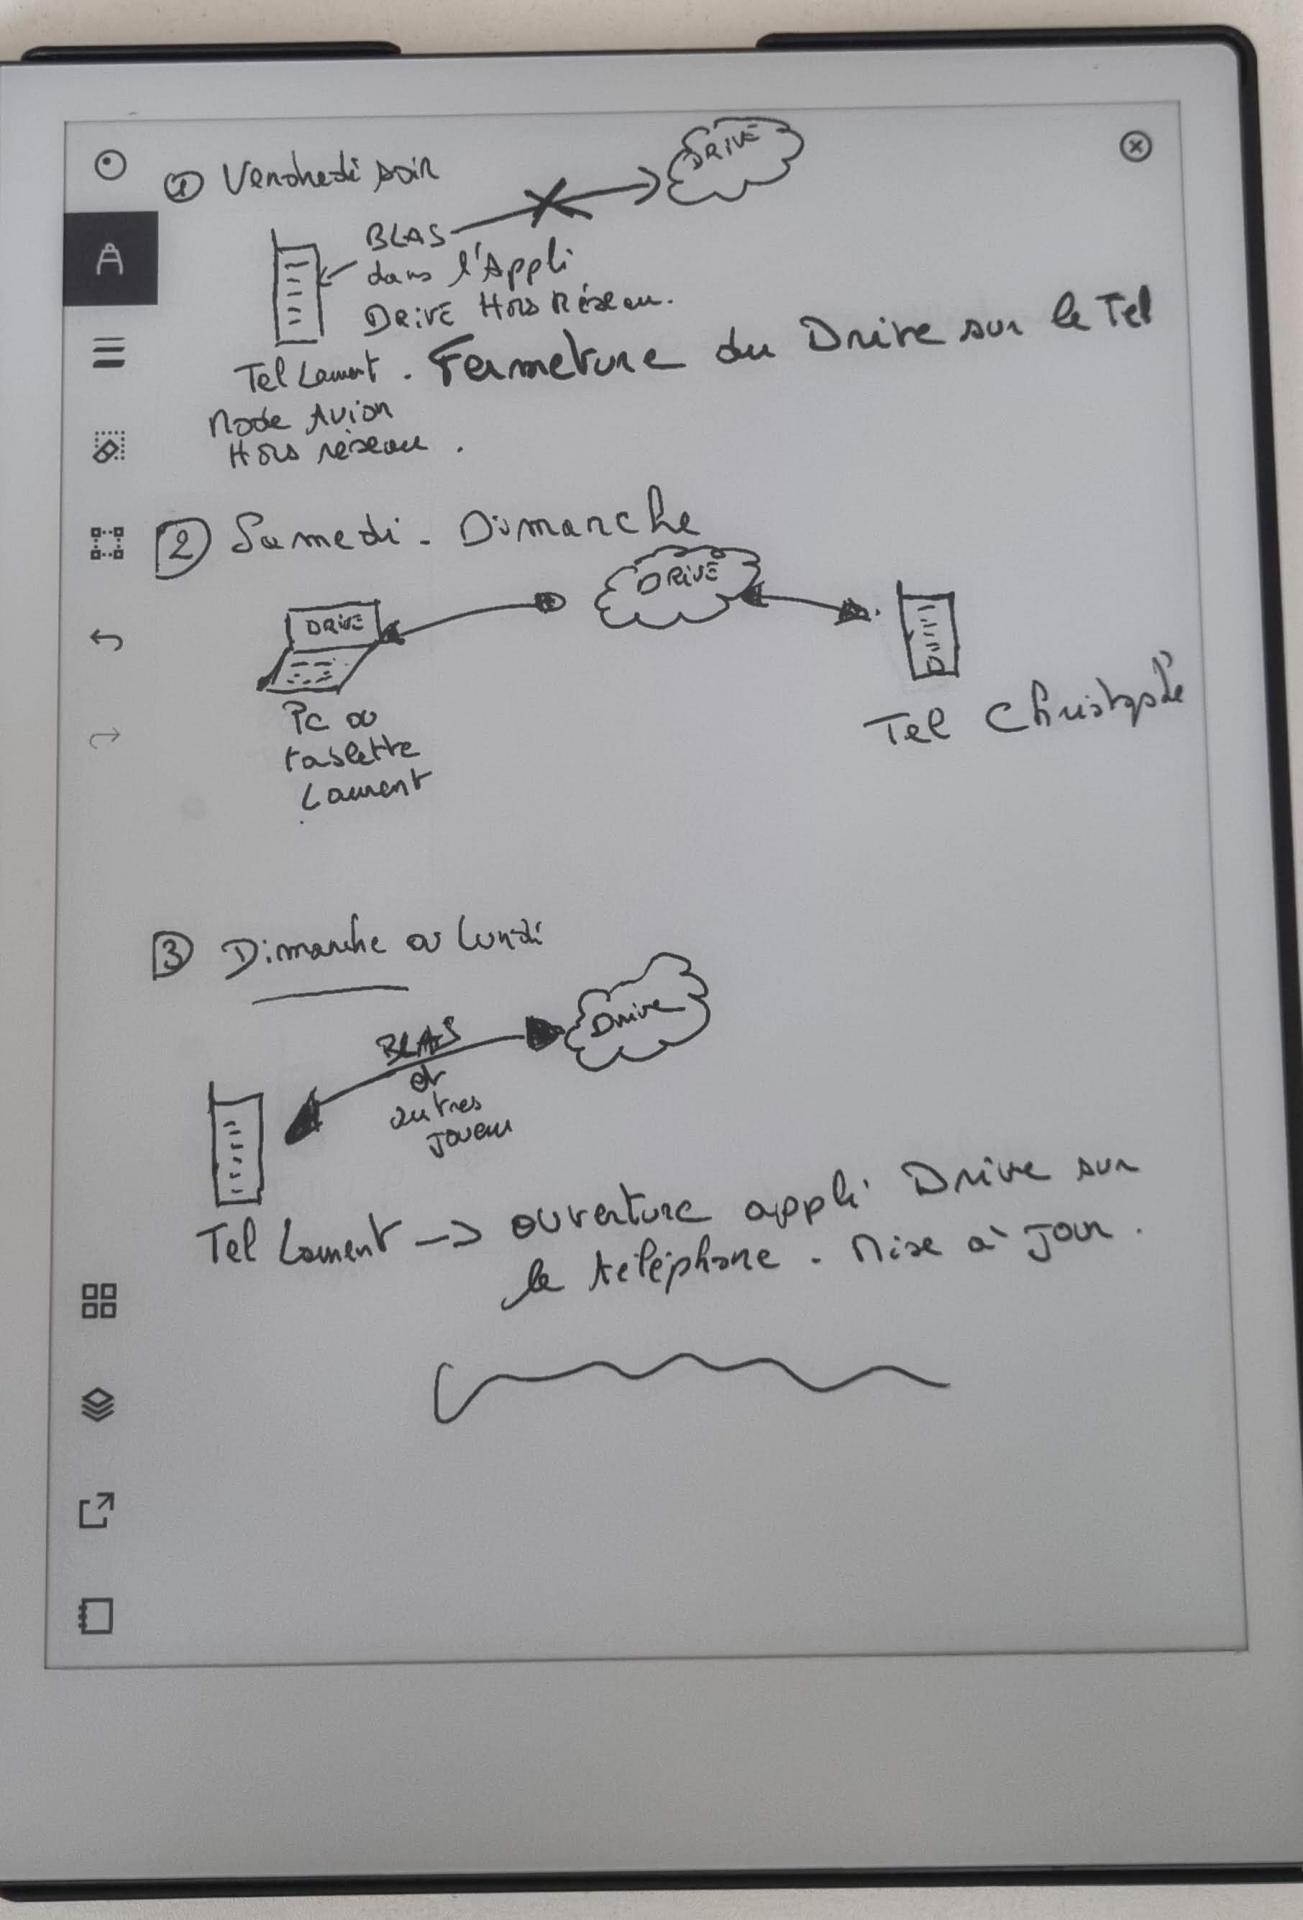 ① Vendredi soir
DRIVE
BLAS
dans l'Appli
DRIVE Hors Réseau.
Tel Laurent. Fermeture du Drive sur le Tel
Mode Avion
Hors réseau.
② Samedi - Dimanche
DRIVE
DRIVE
PC ou
tablette
Laurent
Tel Christophe
③ Dimanche ou Lundi
Drive
BLAS
et
autres
joueurs
Tel Laurent -> ouverture appli Drive sur
le téléphone. Mise à jour.